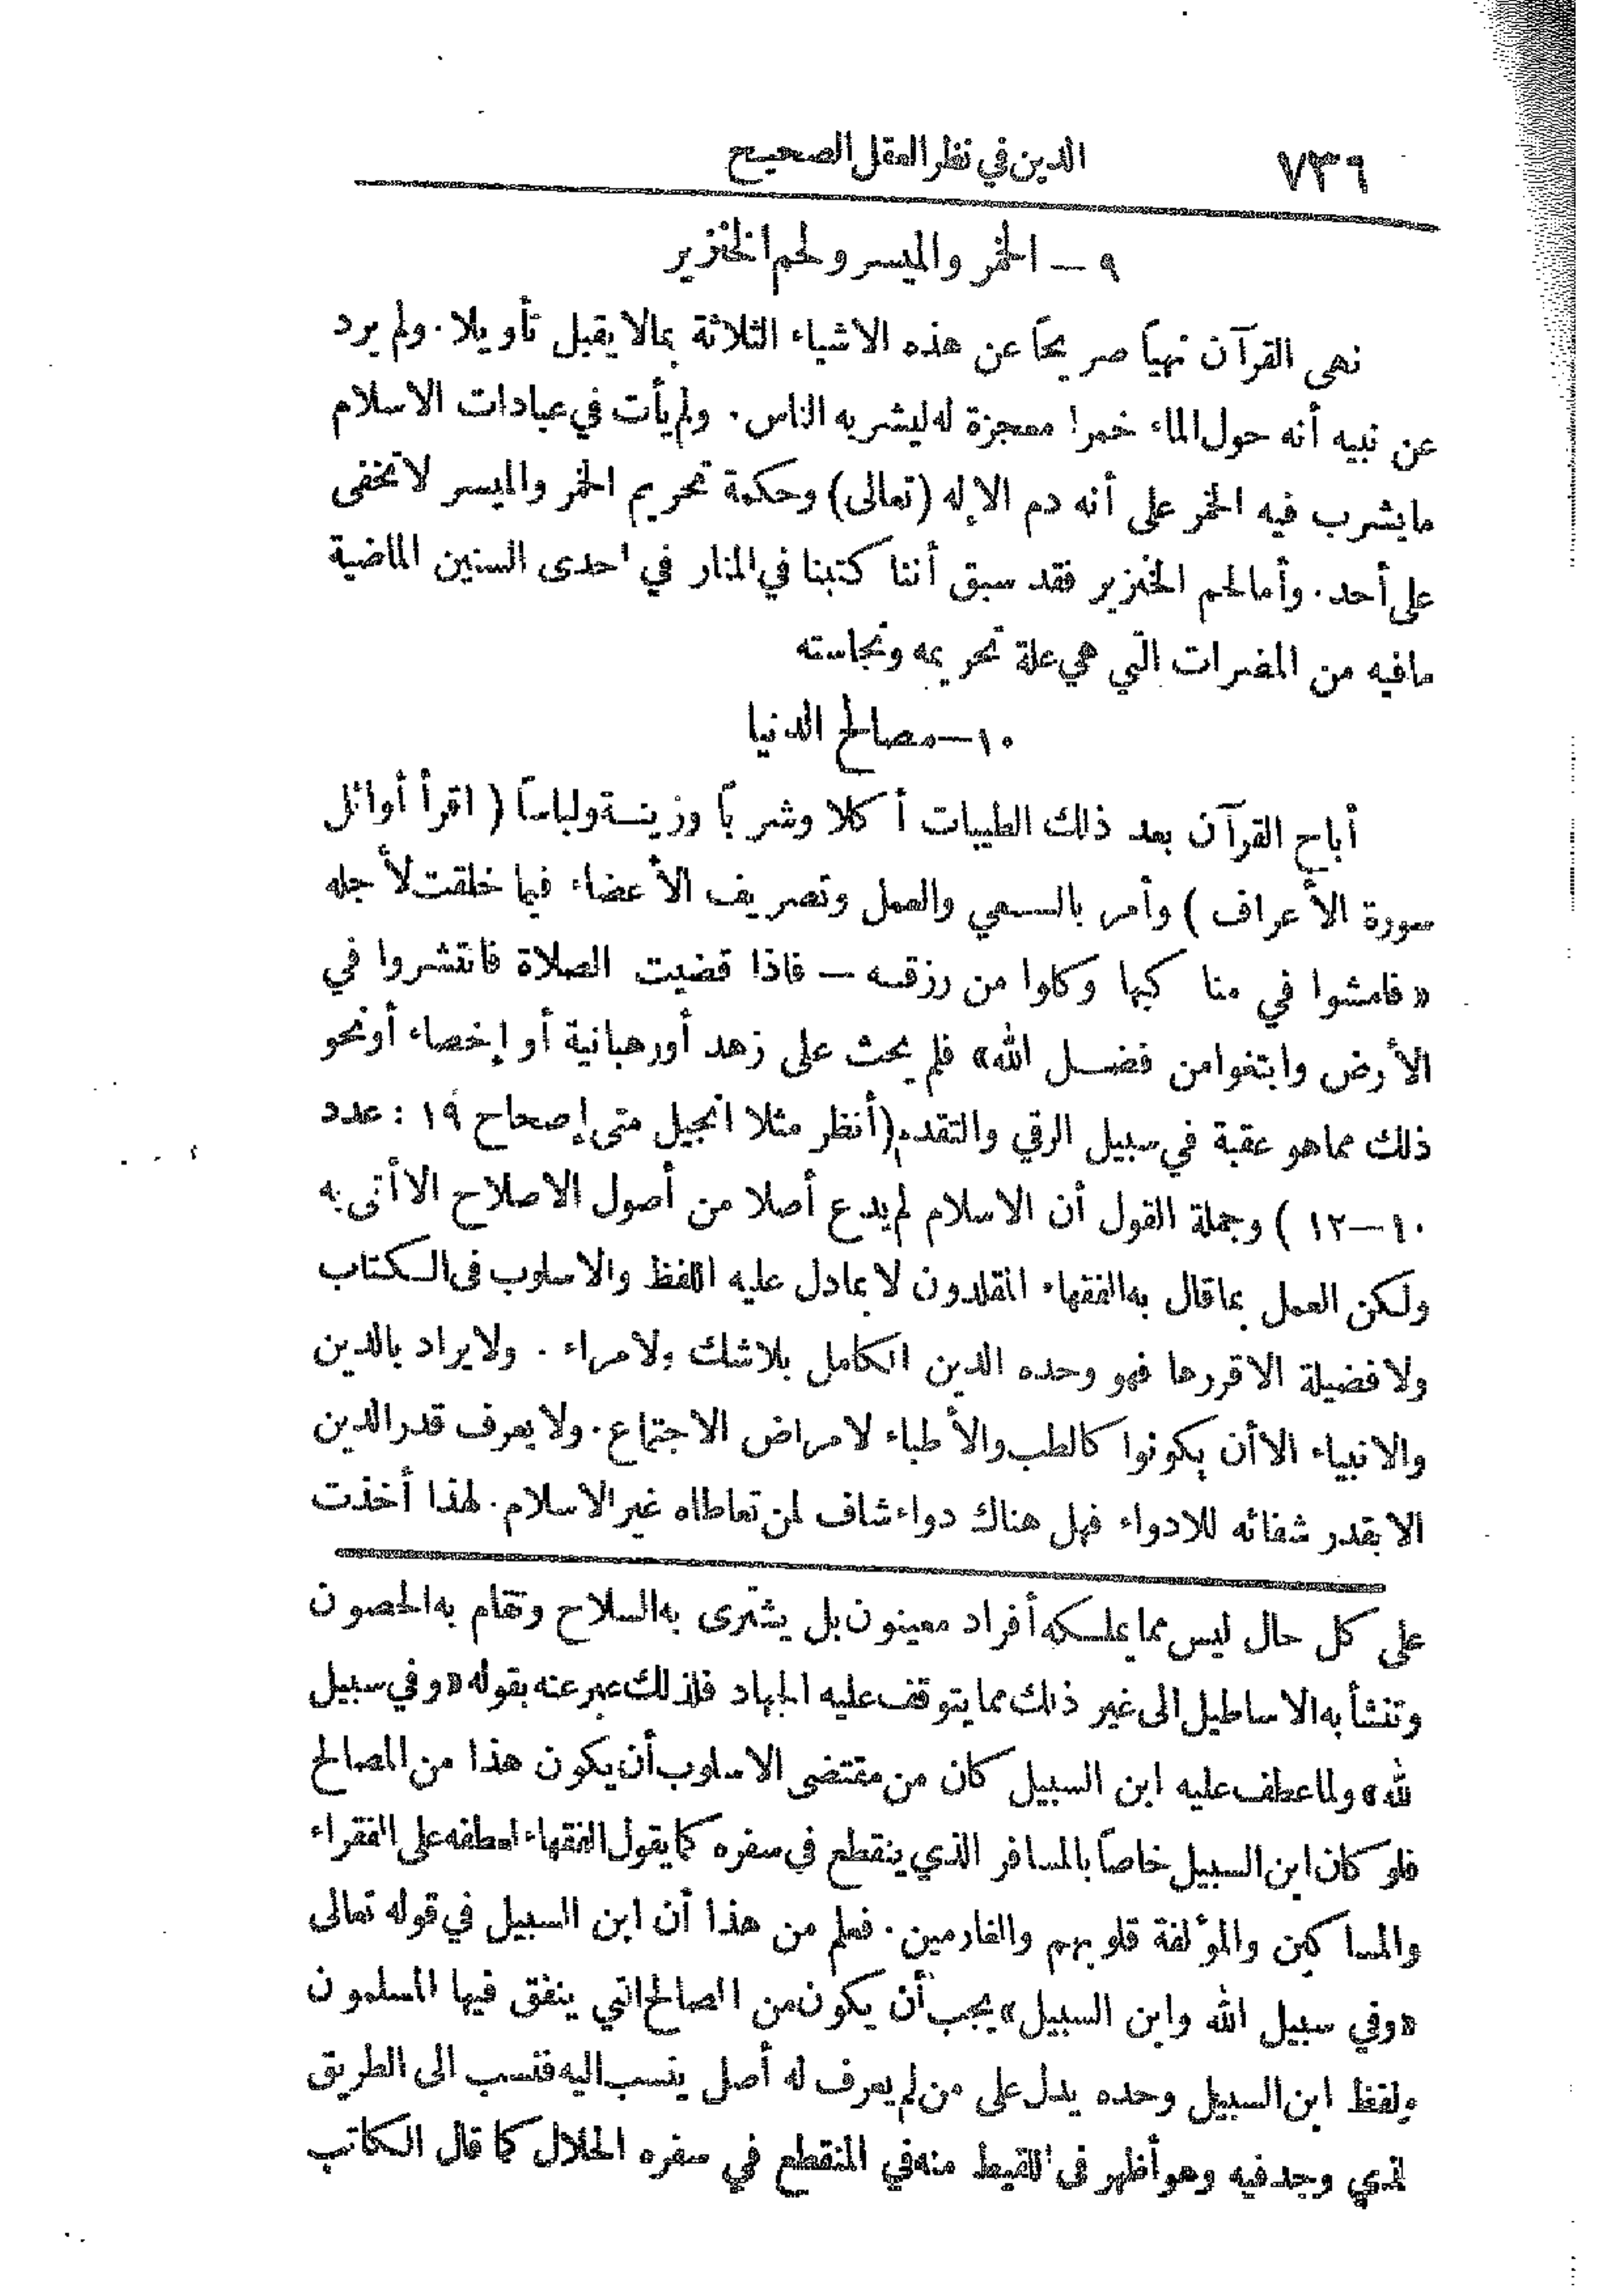 ٧٣٦ الدين في نظر العقل الصحيح
٩ — الخمر والميسر ولحم الخنزير
نهى القرآن نهياً صريحاً عن هذه الاشياء الثلاثة بما لا يقبل تأويلا. ولم يرد
عن نبيه أنه حول الماء خمرا معجزة له ليشربه الناس. ولم يأت في عبادات الاسلام
ما يشرب فيه الخمر على أنه دم الإله (تعالى) وحكمة تحريم الخمر والميسر لا تخفى
على أحد. وأما لحم الخنزير فقد سبق أننا كتبنا في المنار في احدى السنين الماضية
ما فيه من المضرات التي هي علة تحريمه ونجاسته
١٠ — مصالح الدنيا
أباح القرآن بعد ذلك الطيبات أكلا وشرباً وزينة ولباساً ( اقرأ أوائل
سورة الأعراف ) وأمر بالسعي والعمل وتصريف الأعضاء فيما خلقت لأجله
«فامشوا في مناكبها وكلوا من رزقه — فاذا قضيت الصلاة فانتشروا في
الأرض وابتغوا من فضل الله» فلم يحث على زهد أو رهبانية أو إخصاء أو نحو
ذلك مما هو عقبة في سبيل الرقي والتقدم (أنظر مثلا انجيل متى إصحاح ١٩ : عدد
١٠—١٢ ) وجملة القول أن الاسلام لم يدع أصلا من أصول الاصلاح الا أتى به
ولكن العمل بما قال به الفقهاء المقلدون لا بما دل عليه اللفظ والاسلوب في الكتاب
ولا فضيلة الا قررها فهو وحده الدين الكامل بلا شك ولا مراء . ولا يراد بالدين
والانبياء الا أن يكونوا كالطب والأطباء لامراض الاجتماع. ولا يعرف قدر الدين
الا بقدر شفائه للادواء فهل هناك دواء شاف لمن تعاطاه غير الاسلام. لهذا أخذت
على كل حال ليس مما يملكه أفراد معينون بل يشترى به السلاح وتقام به الحصون
وتنشأ به الاساطيل الى غير ذلك مما يتوقف عليه الجهاد فلذلك عبر عنه بقوله «وفي سبيل
لله» ولما عطف عليه ابن السبيل كان من مقتضى الاسلوب أن يكون هذا من المصالح
فلو كان ابن السبيل خاصاً بالمسافر الذي ينقطع في سفره كما يقول الفقهاء لعطفه على الفقراء
والمساكين والمؤلفة قلوبهم والغارمين. فعلم من هذا أن ابن السبيل في قوله تعالى
«وفي سبيل الله وابن السبيل» يجب أن يكون من المصالح التي ينفق فيها المسلمون
ولفظ ابن السبيل وحده يدل على من لم يعرف له أصل ينسب اليه فنسب الى الطريق
لذي وجد فيه وهو أظهر في اللقيط منه في المنقطع في سفره الحلال كما قال الكاتب